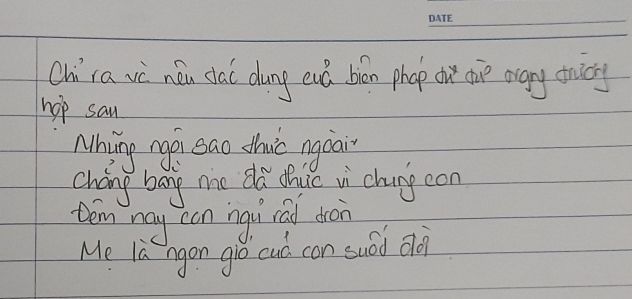 DATE
Chỉ ra và nêu tác dụng của biện pháp tu từ trong trường
hợp sau
Những ngôi sao thức ngoài
Chẳng bằng mẹ đã thức vì chúng con
Đêm nay con ngủ rất tròn
Mẹ là ngọn gió của con suốt đời